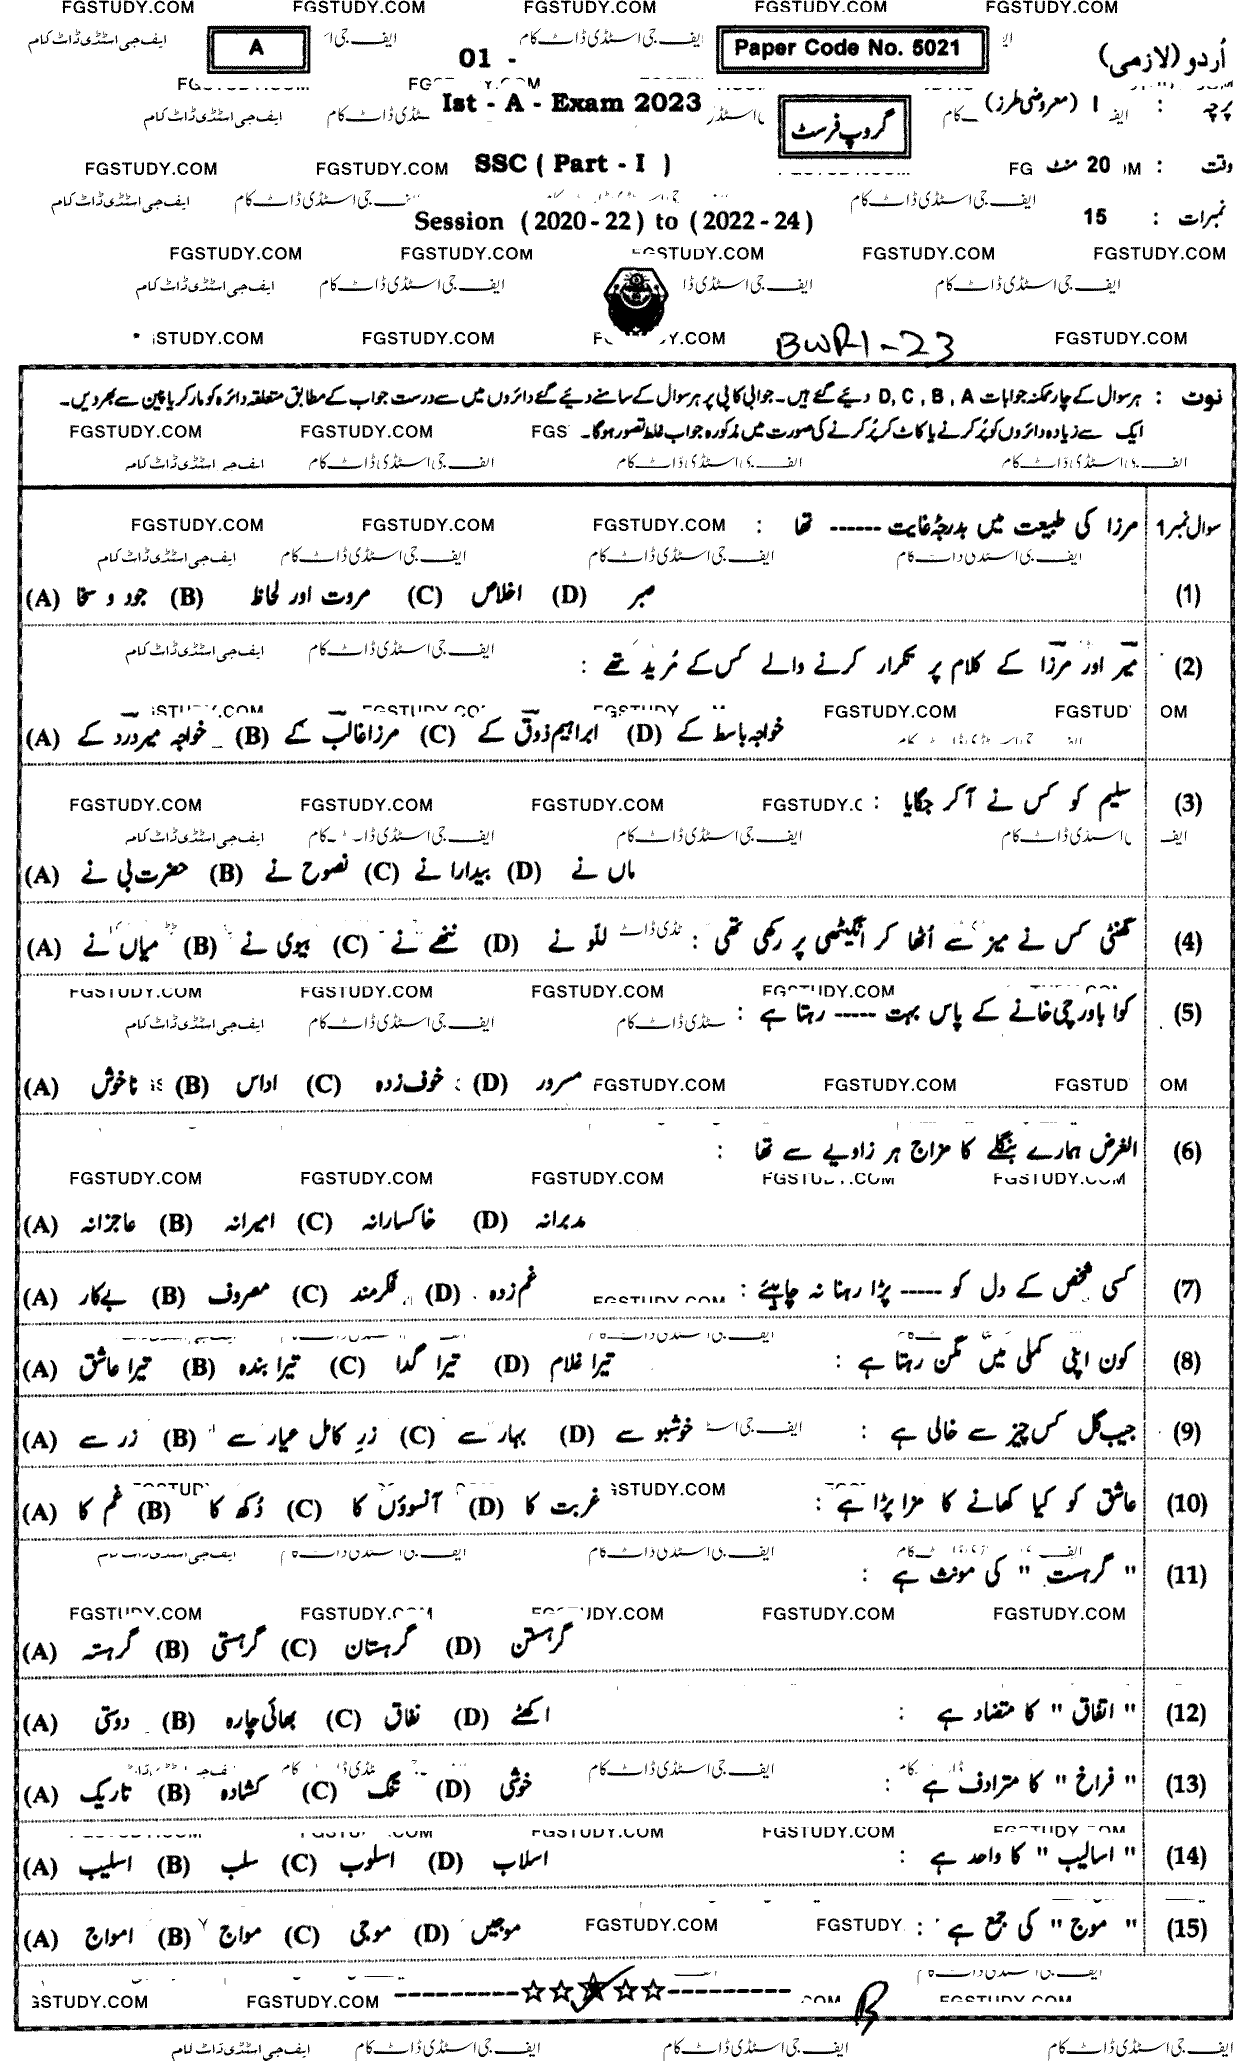 FGSTUDY.COM FGSTUDY.COM FGSTUDY.COM FGSTUDY.COM FGSTUDY.COM
اُردو (لازمی) Paper Code No. 5021 01 - A
پرچہ : I (معروضی طرز) گروپ فرسٹ Ist - A - Exam 2023
وقت : 20 منٹ SSC ( Part - I ) FGSTUDY.COM FGSTUDY.COM
نمبرات : 15 Session ( 2020 - 22 ) to ( 2022 - 24 )
FGSTUDY.COM FGSTUDY.COM FGSTUDY.COM FGSTUDY.COM FGSTUDY.COM
ایف جی اسٹڈی ڈاٹ کام ایف جی اسٹڈی ڈاٹ کام
FGSTUDY.COM BWR1-23 FGSTUDY.COM
نوٹ : ہر سوال کے چار ممکنہ جوابات D, C, B, A دیئے گئے ہیں۔ جوابی کاپی پر ہر سوال کے سامنے دیئے گئے دائروں میں سے درست جواب کے مطابق متعلقہ دائرہ کو مارکر یا پین سے بھر دیں۔
ایک سے زیادہ دائروں کو پُر کرنے یا کاٹ کر پُر کرنے کی صورت میں مذکورہ جواب غلط تصور ہوگا۔ FGSTUDY.COM FGSTUDY.COM
سوال نمبر 1 مرزا کی طبیعت میں بدرجۂ غایت ------ تھا : FGSTUDY.COM FGSTUDY.COM FGSTUDY.COM
(1) (A) جود و سخا (B) مروت اور لحاظ (C) اخلاص (D) صبر
(2) میر اور مرزا کے کلام پر تکرار کرنے والے کس کے مُرید تھے :
(A) خواجہ میر درد کے (B) مرزا غالب کے (C) ابراہیم ذوق کے (D) خواجہ باسط کے
(3) سلیم کو کس نے آ کر جگایا : FGSTUDY.COM FGSTUDY.COM FGSTUDY.COM
(A) حضرت بی نے (B) نصوح نے (C) بیدارا نے (D) ماں نے
(4) گھنٹی کس نے میز سے اُٹھا کر انگیٹھی پر رکھی تھی : (A) میاں نے (B) بیوی نے (C) ننھے نے (D) للّو نے
(5) کوا باورچی خانے کے پاس بہت ----- رہتا ہے :
(A) ناخوش (B) اداس (C) خوف زدہ (D) مسرور FGSTUDY.COM FGSTUDY.COM
(6) الغرض ہمارے بنگلے کا مزاج ہر زاویے سے تھا :
FGSTUDY.COM FGSTUDY.COM FGSTUDY.COM
(A) عاجزانہ (B) امیرانہ (C) خاکسارانہ (D) مدبرانہ
(7) کسی شخص کے دل کو ----- پڑا رہنا نہ چاہیئے : (A) بے کار (B) مصروف (C) فکرمند (D) غم زدہ
(8) کون اپنی کملی میں مگن رہتا ہے : (A) تیرا عاشق (B) تیرا بندہ (C) تیرا گدا (D) تیرا غلام
(9) جیبِ گل کس چیز سے خالی ہے : (A) زر سے (B) زرِ کامل عیار سے (C) بہار سے (D) خوشبو سے
(10) عاشق کو کیا کھانے کا مزا پڑا ہے : (A) غم کا (B) دُکھ کا (C) آنسوؤں کا (D) غربت کا
(11) " گرہست " کی مونث ہے :
FGSTUDY.COM FGSTUDY.COM FGSTUDY.COM FGSTUDY.COM FGSTUDY.COM
(A) گرہستہ (B) گرہستی (C) گرہستان (D) گرہستن
(12) " اتفاق " کا متضاد ہے : (A) دوستی (B) بھائی چارہ (C) نفاق (D) اکھٹے
(13) " فراخ " کا مترادف ہے : (A) تاریک (B) کشادہ (C) تنگ (D) خوشی
(14) " اسالیب " کا واحد ہے : (A) اسلیب (B) سلب (C) اسلوب (D) اسلاب
(15) " موج " کی جمع ہے : (A) امواج (B) مواج (C) موجی (D) موجیں FGSTUDY.COM
----------☆☆★☆☆----------
FGSTUDY.COM B
ایف جی اسٹڈی ڈاٹ کام ایف جی اسٹڈی ڈاٹ کام ایف جی اسٹڈی ڈاٹ کام